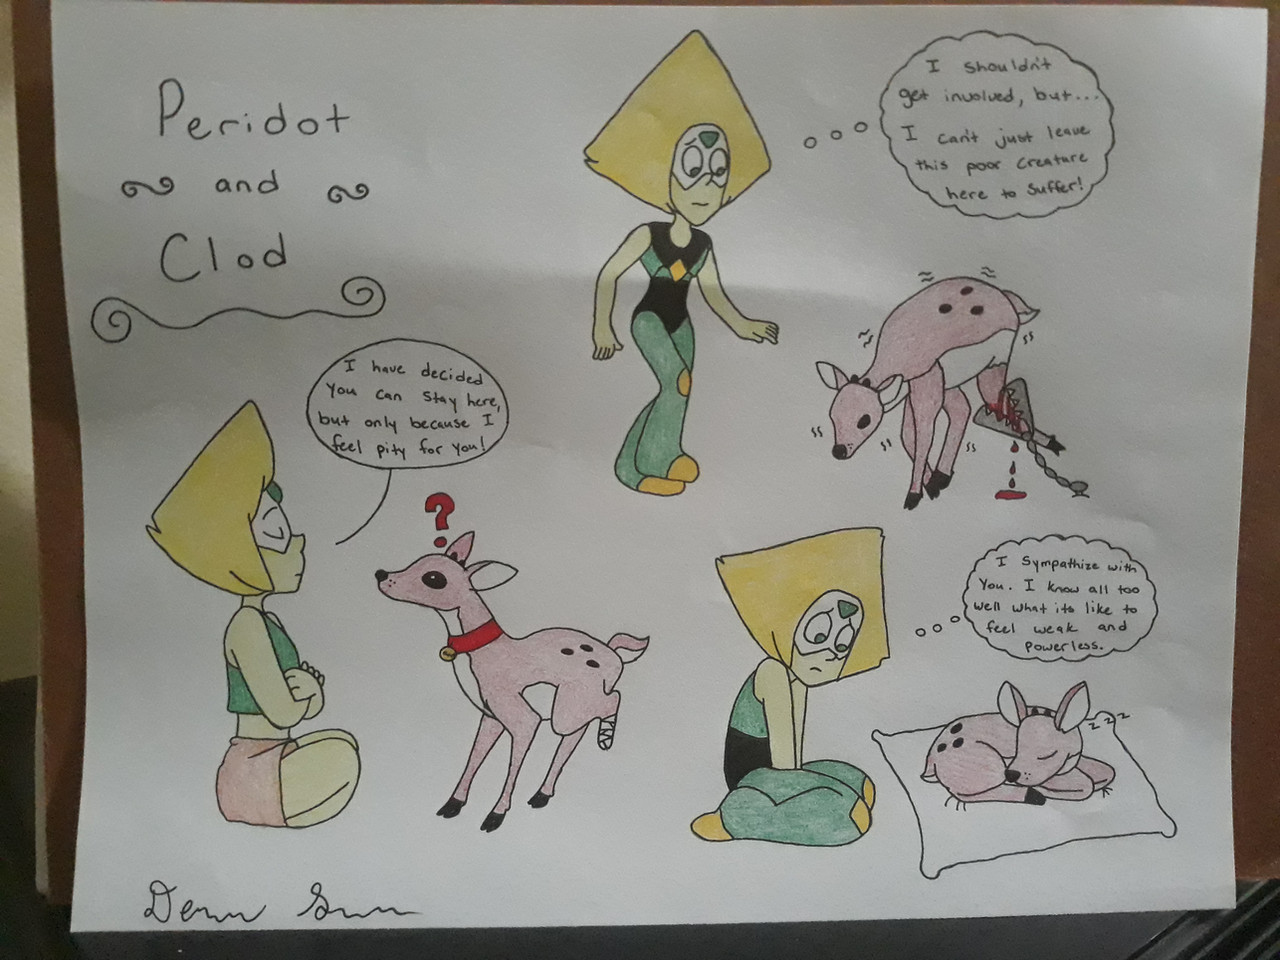 Peridot
and
Clod
I shouldn't
get involved, but...
I can't just leave
this poor creature
here to suffer!
I have decided
you can stay here,
but only because I
feel pity for you!
?
I sympathize with
you. I know all too
well what its like to
feel weak and
powerless.
z z z